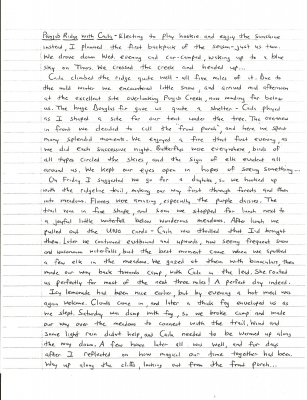 Pugsb Ridge with Carla - Electing to play hookie and enjoy the sunshine
instead, I planned the first backpack of the season - just us two.
We drove down Wed. evening and car-camped, waking up to a blue
sky on Thurs. We crossed the creek and headed up...
Carla climbed the ridge quite well - all five miles of it. Due to
the mild winter we encountered little snow, and arrived mid afternoon
at the excellent site overlooking Pugsb Creek, now roaring far below
us. The huge Douglas fir gave us quite a shelter - Carla played
as I shaped a site for our tent under the tree. The overview
in front we decided to call the 'front porch', and here we spent
many splendid moments. We enjoyed a fire that first evening, as
we did each successive night. Butterflies were everywhere, birds of
all types circled the skies, and the sign of elk evident all
around us. We kept our eyes open in hopes of seeing something...
On Friday I suggested we go for a dayhike, so we headed up
with the ridgeline trail, making our way first through forests and then
into meadows. Flowers were amazing, especially the purple daisies. The
trail was in fine shape, and soon we stopped for lunch next to
a joyful little waterfall below wondrous meadows. After lunch we
pulled out the UNO cards - Carla was thrilled that I'd brought
them. Later we continued eastbound and upwards, now seeing frequent snow
and uncommon waterfalls, but the best moment came when we spotted
a few elk in the meadow. We gazed at them with binoculars, then
made our way back towards camp, with Carla in the lead. She rooted
us perfectly for most of the next three miles. A perfect day indeed.
Icy lemonade had been nice earlier, but by evening a hot meal was
again welcome. Clouds came in and later a thick fog enveloped us as
we slept. Saturday was damp with fog, so we broke camp and made
our way over the meadows to connect with the trail. Wind and
some light rain didn't help, and Carla needed to be warmed up along
the way down. A few hours later all was well, and for days
after I reflected on how magical our time together had been.
Way up along the cliffs looking out from the front porch...